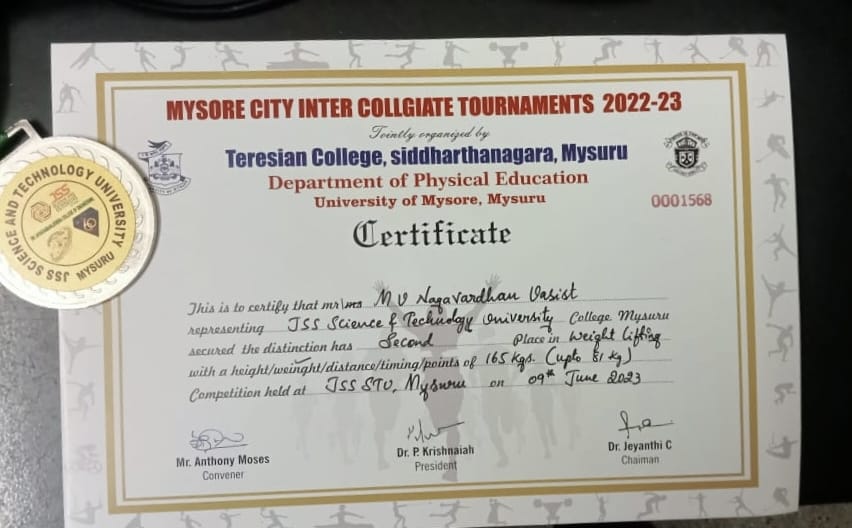 MYSORE CITY INTER COLLGIATE TOURNAMENTS 2022-23
Jointly organized by
Teresian College, siddharthanagara, Mysuru
Department of Physical Education
University of Mysore, Mysuru
0001568
Certificate
This is to certify that mr\ms M V Nagavardhan Vasist
representing JSS Science & Technology University College Mysuru
secured the distinction has Second Place in Weight Lifting
with a height/weinght/distance/timing/points of 165 kgs. (upto 81 kg)
Competition held at JSS STU, Mysuru on 09th June 2023
Mr. Anthony Moses
Convener
Dr. P. Krishnaiah
President
Dr. Jeyanthi C
Chairman
JSS SCIENCE AND TECHNOLOGY UNIVERSITY
JSS
MYSURU